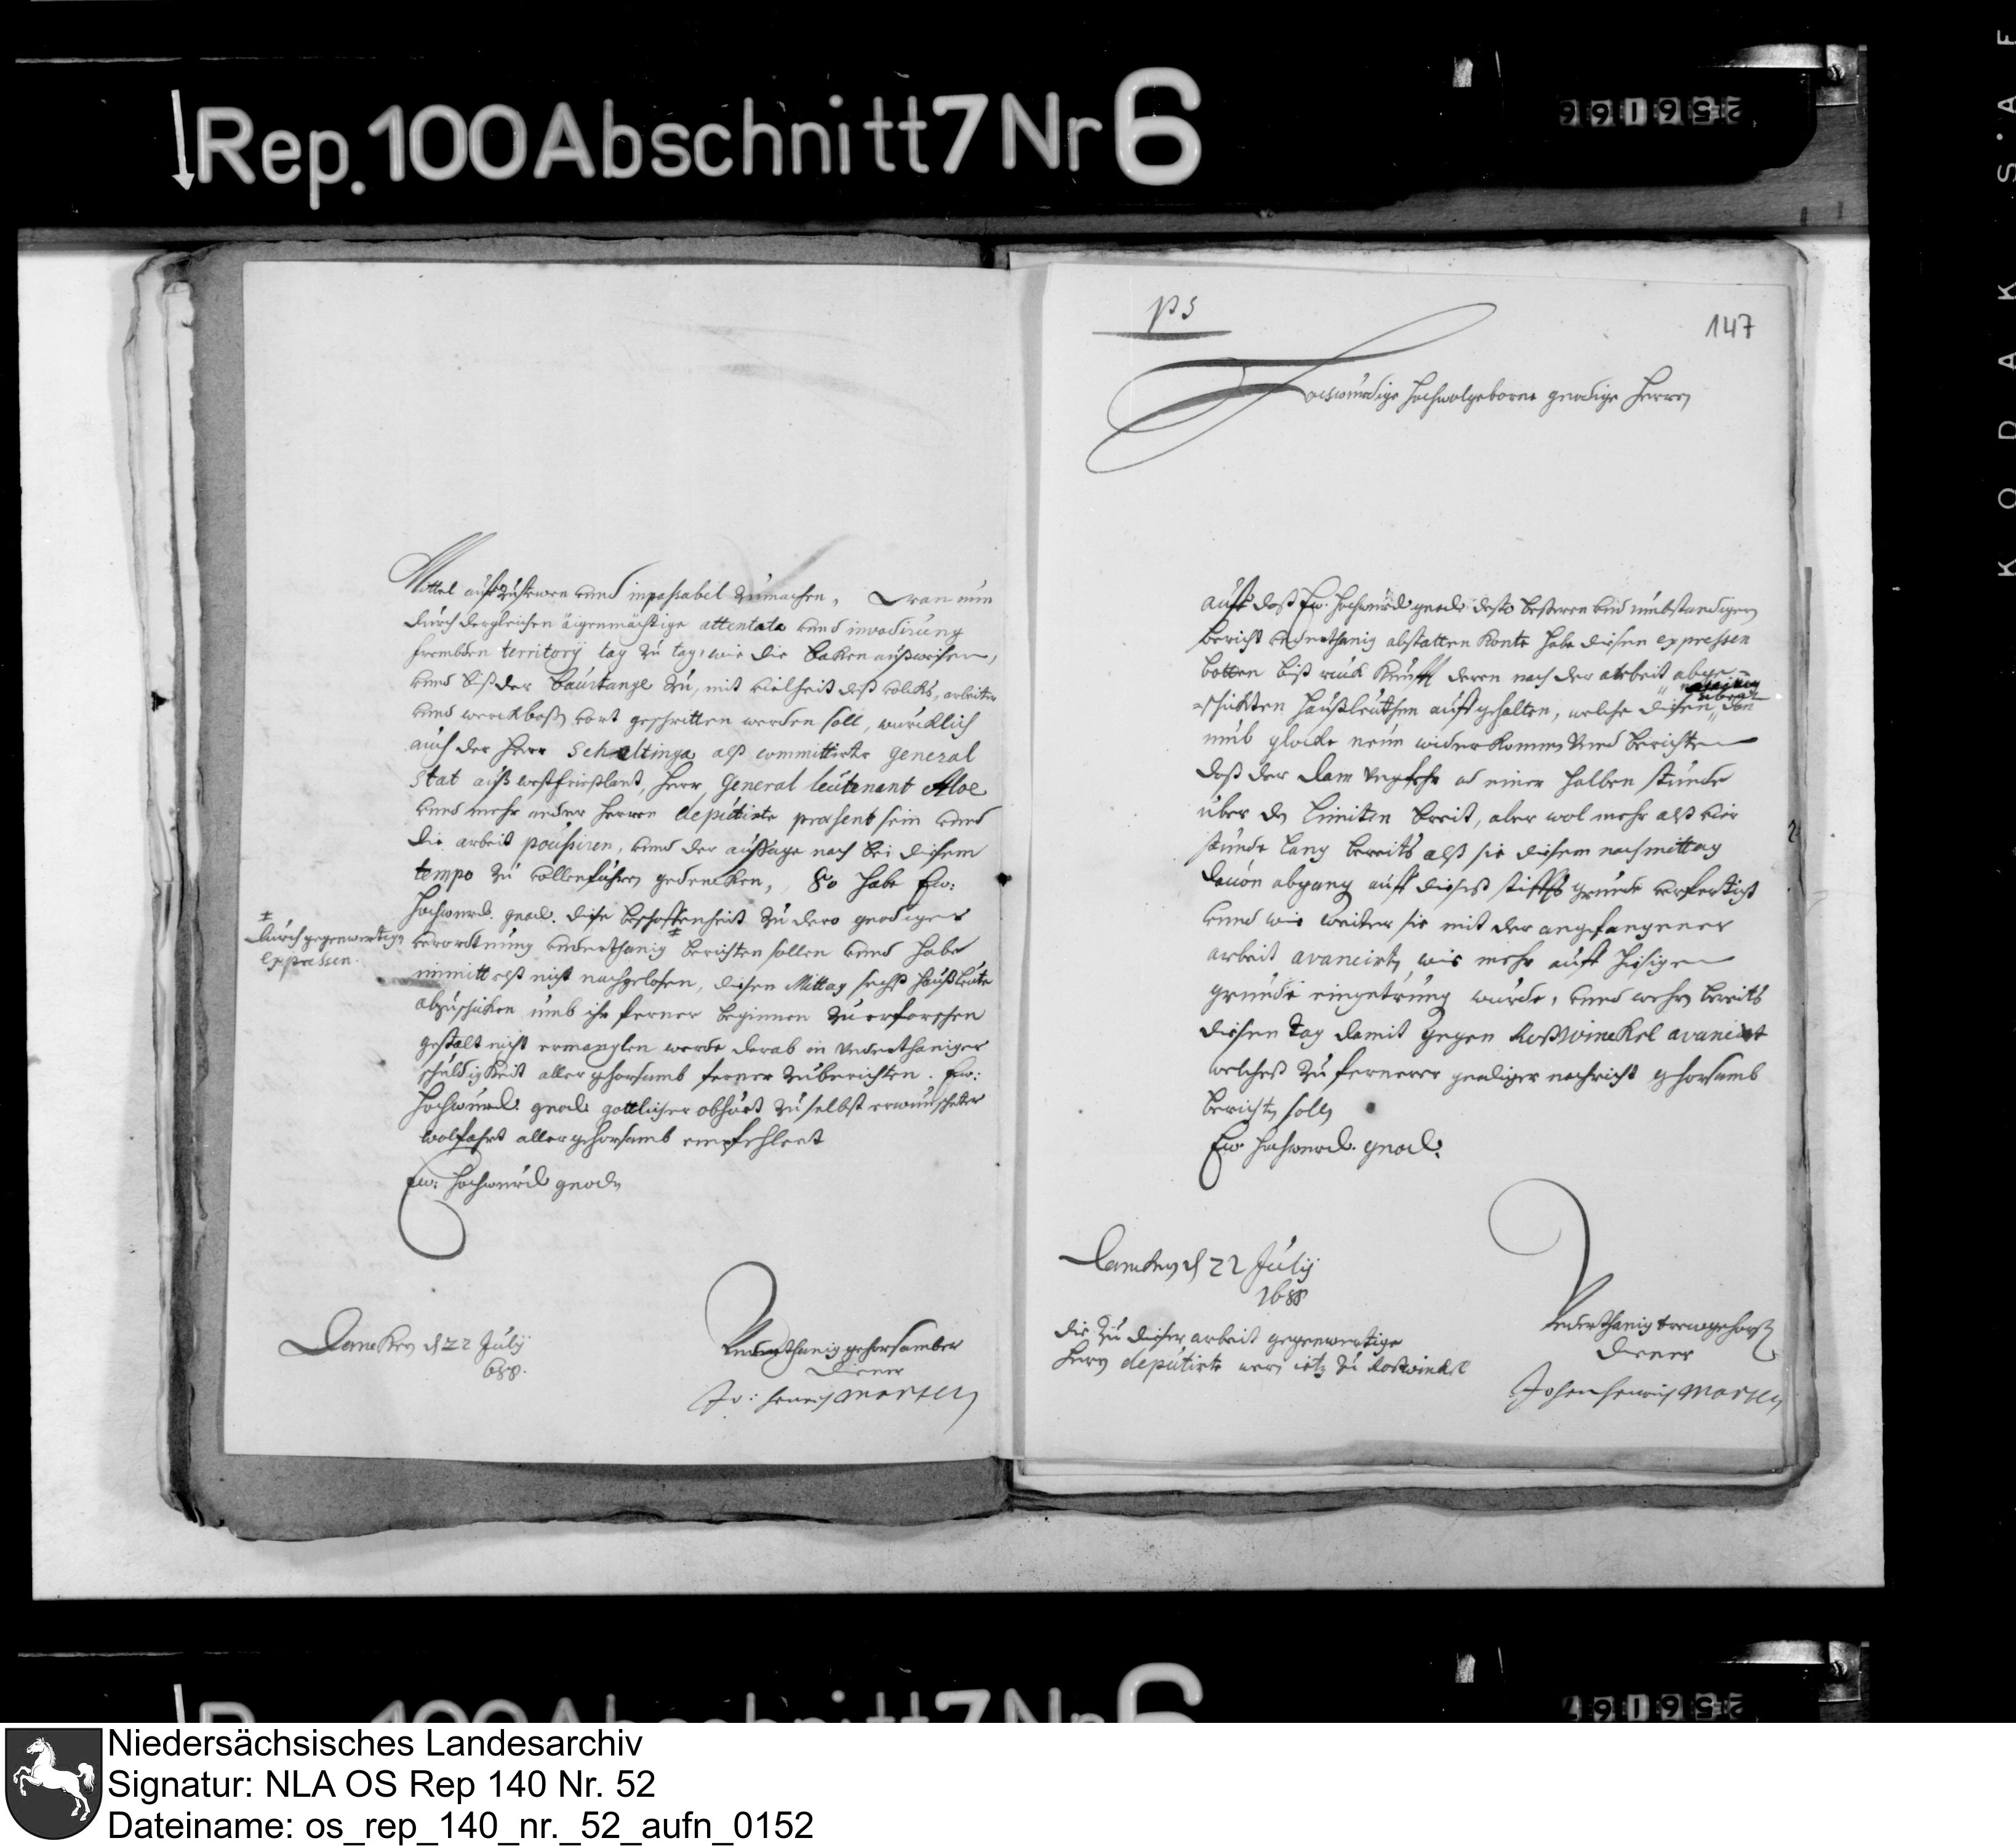 Rep. 100 Abschnitt 7 Nr 6
256166
Mittel auffzuführen unnd impassabel zumachen, Wan nun
durch dergleichen äigenmächtige attentata unnd invadirung
frembden territorij tag zu tag, wie die baken außweisen,
unnd biß der baurtange zu, mit vielheit deß volcks, arbeiter
unnd werckbaß vort geschritten werden soll, würcklich
auch der Herr Schaltinga alß committirte General
Stat auß westfrießlant, Herr General leutenant Aloe
unnd mehr ander herren deputirte praesent sein unnd
die arbeit poussiren, unnd der aussage nach bei diesem
tempo zu vollenführen gedencken, So habe Ew:
Hochwurd. gnad. diese beschaffenheit zu dero gnädiger
verordtnung underthanig ‡ berichten sollen unnd habe
‡
durch gegenwertige
expressen.
immittelst nicht nachgelasen, diesen Mittag sechß haußleute
abzuschiken umb ihr ferner beginnen zu erforschen
gestalt nicht ermanglen werde darab in underthaniger
schuldigkeit aller gehorsamb ferner zuberichten. Ew:
Hochwurd. gnad. gottlicher obhuet zu selbst erwunschter
wolfahrt aller gehorsamb empfehlent
Ew: Hochwurd gnad.
Dancken d 22 Julij
688.
Underthanig gehorsamber
Diener
Jo: henrich Morsen
PS
147
Hochwürdige Hochwolgeborne gnadige Herren
auff daß Ew. Hochwurd gnad. desto besseren und umbstandigen
bericht underthanig abstatten konte habe diesen expressen
botten biß ruck kunfft deren nach der arbeit abge-
schickten haußleuthen auffgehalten, welche diesen
umb glocke neun widerkommen unnd berichten
daß der Dam ungefehr ad einer halben stunde
uber de limiten breit, aber wol mehr alß vier
stunde lang bereits alß sie diesem nachmittag
davon abgang auff dieseß stiffts grunde verfertigt
unnd wie weiter sie mit der angefangener
arbeit avancirt, wie mehr auff hiesigen
grunde eingetrung wurde, unnd wehre bereits
diesen tag damit gegen Roßwinckel avancirt
welcheß zu fernerer gnadiger nachricht gehorsamb
berichten soll
Ew. Hochwurd. gnad.
Dancken d 22 Julij
1688
die zu dieser arbeit gegenwertige
herrn deputirte wern ietz zu Roßwinckel
Underthanig trewgehorsamb
Diener
Johan henrich Morsen
KODAK S'AF
256167
Niedersächsisches Landesarchiv
Signatur: NLA OS Rep 140 Nr. 52
Dateiname: os_rep_140_nr._52_aufn_0152